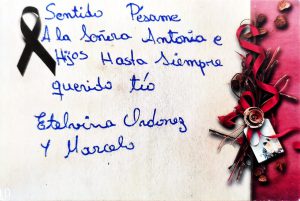 Sentido Pésame
A la Soñera Antonia e
Hijos Hasta Siempre
querido tío
Etelvina Ordonez
Y Marcelo